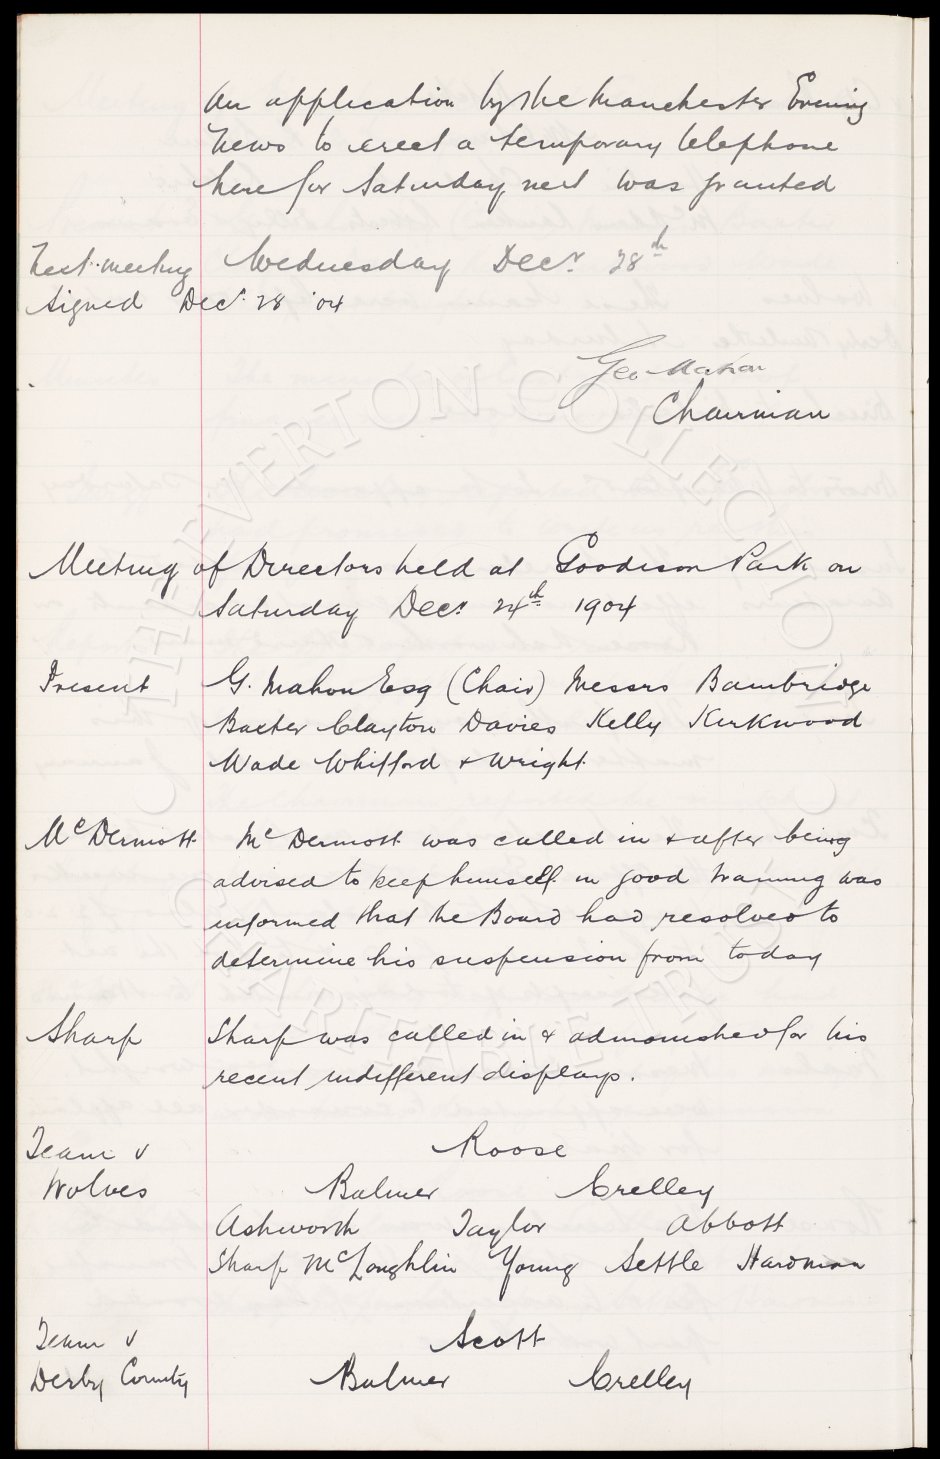 An application by the Manchester Evening
News to erect a temporary telephone
here for Saturday next was granted
Next meeting Wednesday Decr 28th
Signed Decr 28 '04
Geo Mahon
Chairman
Meeting of Directors held at Goodison Park on
Saturday Decr 24th 1904
Present G. Mahon Esq (Chair) Messrs Bambridge
Baxter Clayton Davies Kelly Kirkwood
Wade Whitford & Wright
McDermott McDermott was called in & after being
advised to keep himself in good training was
informed that the Board had resolved to
determine his suspension from today
Sharp Sharp was called in & admonished for his
recent indifferent displays.
Team v Roose
Wolves Balmer Crelley
Ashworth Taylor Abbott
Sharp McLoughlin Young Settle Hardman
Team v Scott
Derby County Balmer Crelley
THE EVERTON COLLECTION
CHARITABLE TRUST